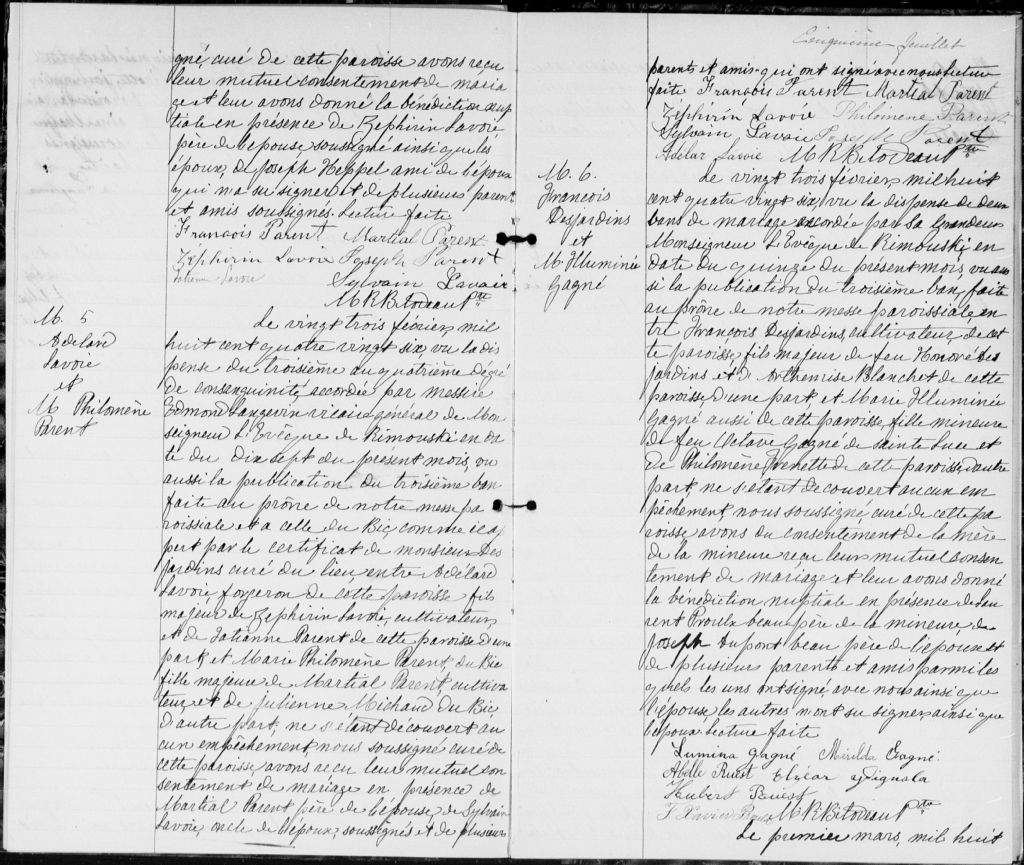 gné, curé de cette paroisse avons reçu
leur mutuel consentement de maria
ge et leur avons donné la bénédiction nup
tiale en présence de Zéphirin Lavoie,
père de l'épouse soussigné ainsi que les
époux, de Joseph Heppel ami de l'époux
qui n'a su signer et de plusieurs parent
et amis soussignés. Lecture faite
François Parent Martial Parent
Zéphirin Lavoie Joseph Parent
Lavoie
Sylvain Lavoie
M R Bilodeau Ptre
M. 5
Adélard
Lavoie
et
M Philomène
Parent
Le vingt trois février, mil
huit cent quatre vingt six, vu la dis
pense du troisième au quatrième degré
de consanguinité accordée par messire
Edmond Langevin vicaire général de Mon
seigneur L'Evêque de Rimouski en da
te du dix sept du présent mois, vu
aussi la publication du troisième ban
faite au prône de notre messe pa
roissiale et a celle du Bic, comme il ap
pert par le certificat de monsieur Des
jardins curé du lieu, entre Adélard
Lavoie, forgeron de cette paroisse fils
majeur de Zéphirin Lavoie, cultivateur,
et de Tatianne Parent de cette paroisse d'une
part, et Marie Philomène Parent, du Bic
fille majeure de Martial Parent, cultiva
teur et de Julienne Michaud du Bic
d'autre part, ne s'étant découvert au
cun empêchement nous soussigné curé de
cette paroisse, avons reçu leur mutuel con
sentement de mariage en présence de
Martial Parent père de l'épouse, de Sylvain
Lavoie, oncle de l'époux, soussignés et de plusieurs
Cinquième feuillet
parents et amis qui ont signé avec nous lecture
faite François Parent Martial Parent
Zéphirin Lavoie Philomene Parent
Sylvain Lavoie Joseph Parent
Adélar Lavoie M R Bilodeau Ptre
M. 6.
François
Desjardins
et
M. Illuminée
Gagné
Le vingt trois février, mil huit
cent quatre vingt six, vu la dispense de deux
bans de mariage accordée par Sa Grandeur
Monseigneur L'Evêque de Rimouski, en
date du quinze du présent mois, vu aus
si la publication du troisième ban, faite
au prône de notre messe paroissiale, en
tre François Desjardins, cultivateur de cet
te paroisse, fils majeur de feu Honoré Des
jardins et d'Orthemise Blanchet de cette
paroisse d'une part et Marie Illuminée
Gagné aussi de cette paroisse, fille mineure
de feu Octave Gagné de Sainte Luce et
de Philomène Frenette de cette paroisse d'autre
part, ne s'étant découvert aucun em
pêchement, nous soussigné, curé de cette pa
roisse, avons du consentement de la mère
de la mineure reçu leur mutuel consen
tement de mariage et leur avons donné
la bénédiction nuptiale en présence de Lau
rent Proulx beau père de la mineure, de
Joseph Dupont beau père de l'épouse et
de plusieurs parents et amis parmi les
quels les uns ont signé avec nous ainsi que
l'épouse, les autres n'ont su signer, ainsi que
l'époux Lecture faite
Lumina Gagné Mirilda Gagné.
Abelle Ruest Elzéar
Hubert Ruest
F Xavier M R Bilodeau Ptre
Le premier mars, mil huit